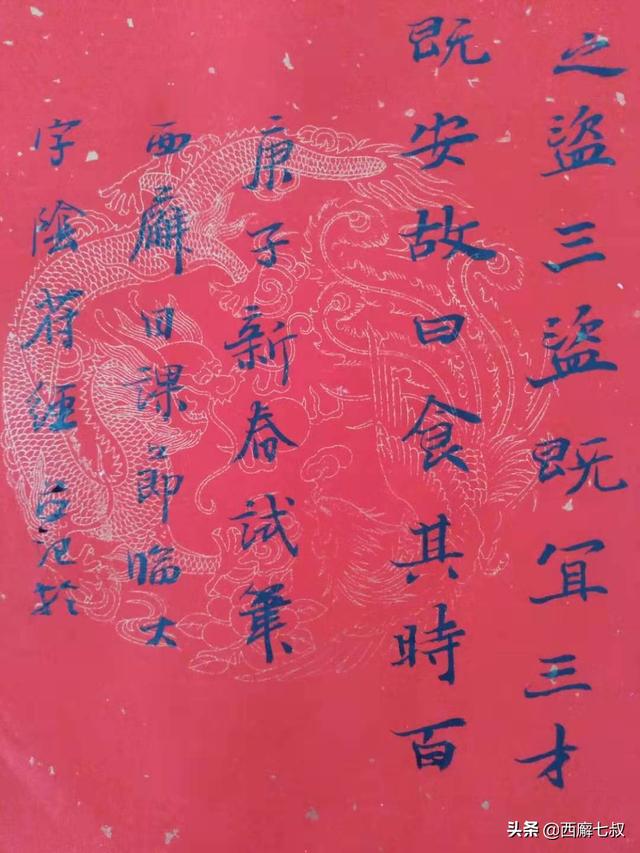 之盜三盜既冝三才
既安故曰食其時百
庚子新春試筆
西廨日課之即臨大
字陰符經
头条 @西廨七叔